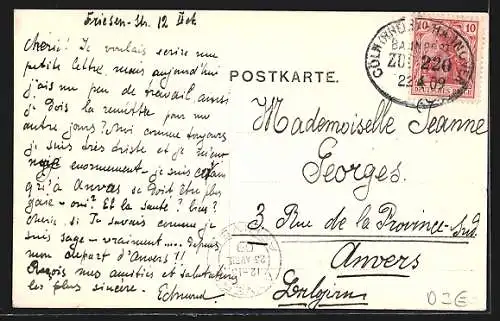 Friesen-Str. 12 IIet
Chérie! Je voulais écrire une
petite lettre, mais aujourd'hui
j'ais un peu de travail ainsi
je dois la remettre pour un
autre jours? Moi comme toujours
je suis très triste et je m'ennuie
enormement - je suis
qu'à Anvers se doit être plus
gaie - oui? Et la santé? bien?
Cherie, si Tu savais comme je
suis sage - vraiment... depuis
mon départ d'Anvers!!
Reçois mes amitiés et salutations
les plus sincère. Edmund.
POSTKARTE.
CÖLN (RHEIN)-HANNOVER
BAHNPOST
ZUG 220
22 4 09
10 10
DEUTSCHES REICH
Mademoiselle Jeanne
Georges.
3 Rue de la Province-Sud
Anvers
Belgien
ANVERS
23 AVRIL
12-
09